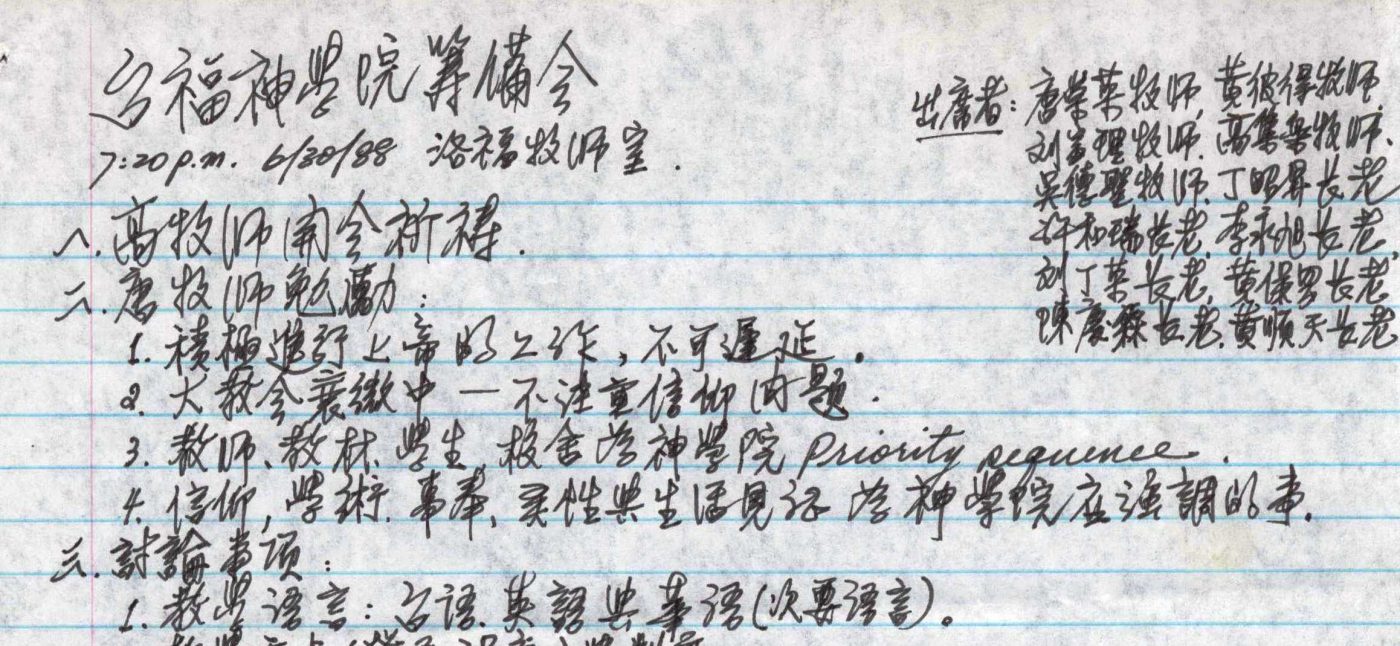 台福神学院筹備会
7:20 p.m. 6/30/88 洛福牧师室.
出席者: 唐崇荣牧师, 黄彼得牧师,
刘富理牧师. 高集乐牧师、
吴德聖牧师. 丁昭昇长老
許和瑞长老, 李永旭长老,
刘丁荣长老, 黄保罗长老
陳慶霖长老. 黄順天长老
一. 高牧师開会祈祷.
二. 唐牧师勉勵:
1. 積極進行上帝的工作, 不可遲延。
2. 大教会衰微中 — 不注重信仰内題.
3. 教师、教材、学生、校舍為神学院 Priority sequence.
4. 信仰, 学術. 事奉, 灵性與生活見証 為神学院应强調的事.
三. 討論事项:
1. 教学语言: 台语. 英語與華语(次要語言)。